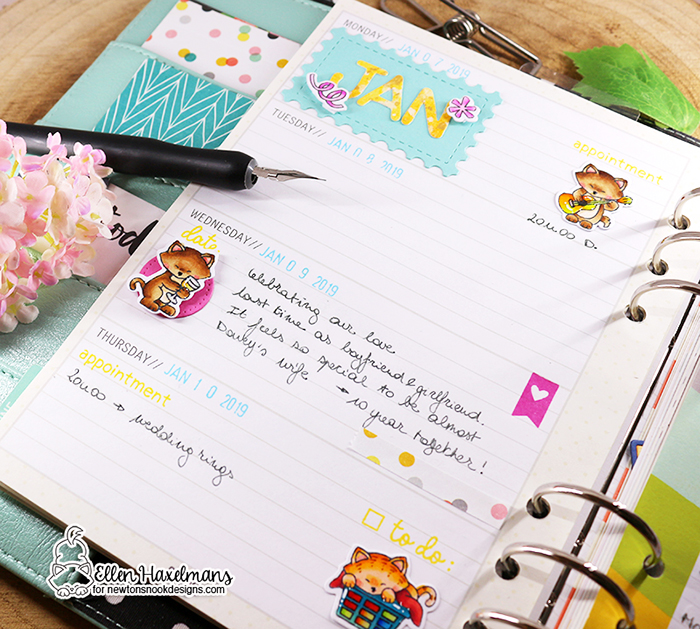 MONDAY// JAN 07 2019
JAN
TUESDAY// JAN 08 2019
appointment
20u00 D.
WEDNESDAY// JAN 09 2019
date:
Celebrating our love
Last time as boyfriend & girlfriend.
It feels so special to be almost
Davey's wife → 10 year together!
THURSDAY// JAN 10 2019
appointment
20u00 → wedding rings
to do:
Ellen Haxelmans
for newtonsnookdesigns.com